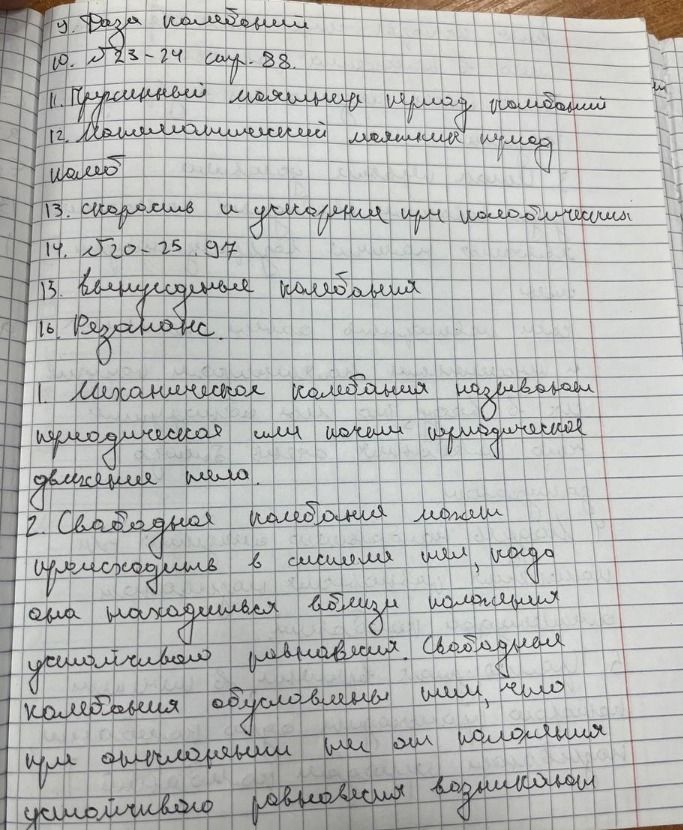 9. Фаза колебании
10. №23-24 стр. 88.
11. Пружинный маятник период колебаний
12. Математический маятник период
колеб
13. скорость и ускорения при
14. №20-25. 97
15. Вынужденые колебания
16. Резананс.
1. Механическое колебания называют
периодическое или почти периодическое
движение тела.
2. Свабодная колебания может
происходить в системе тел, когда
она находиться вблизи положения
устойчивого равновесия. Свободные
колебания обусловлены тем, что
при отклонении тел от положения
устойчивого равновесия возникают